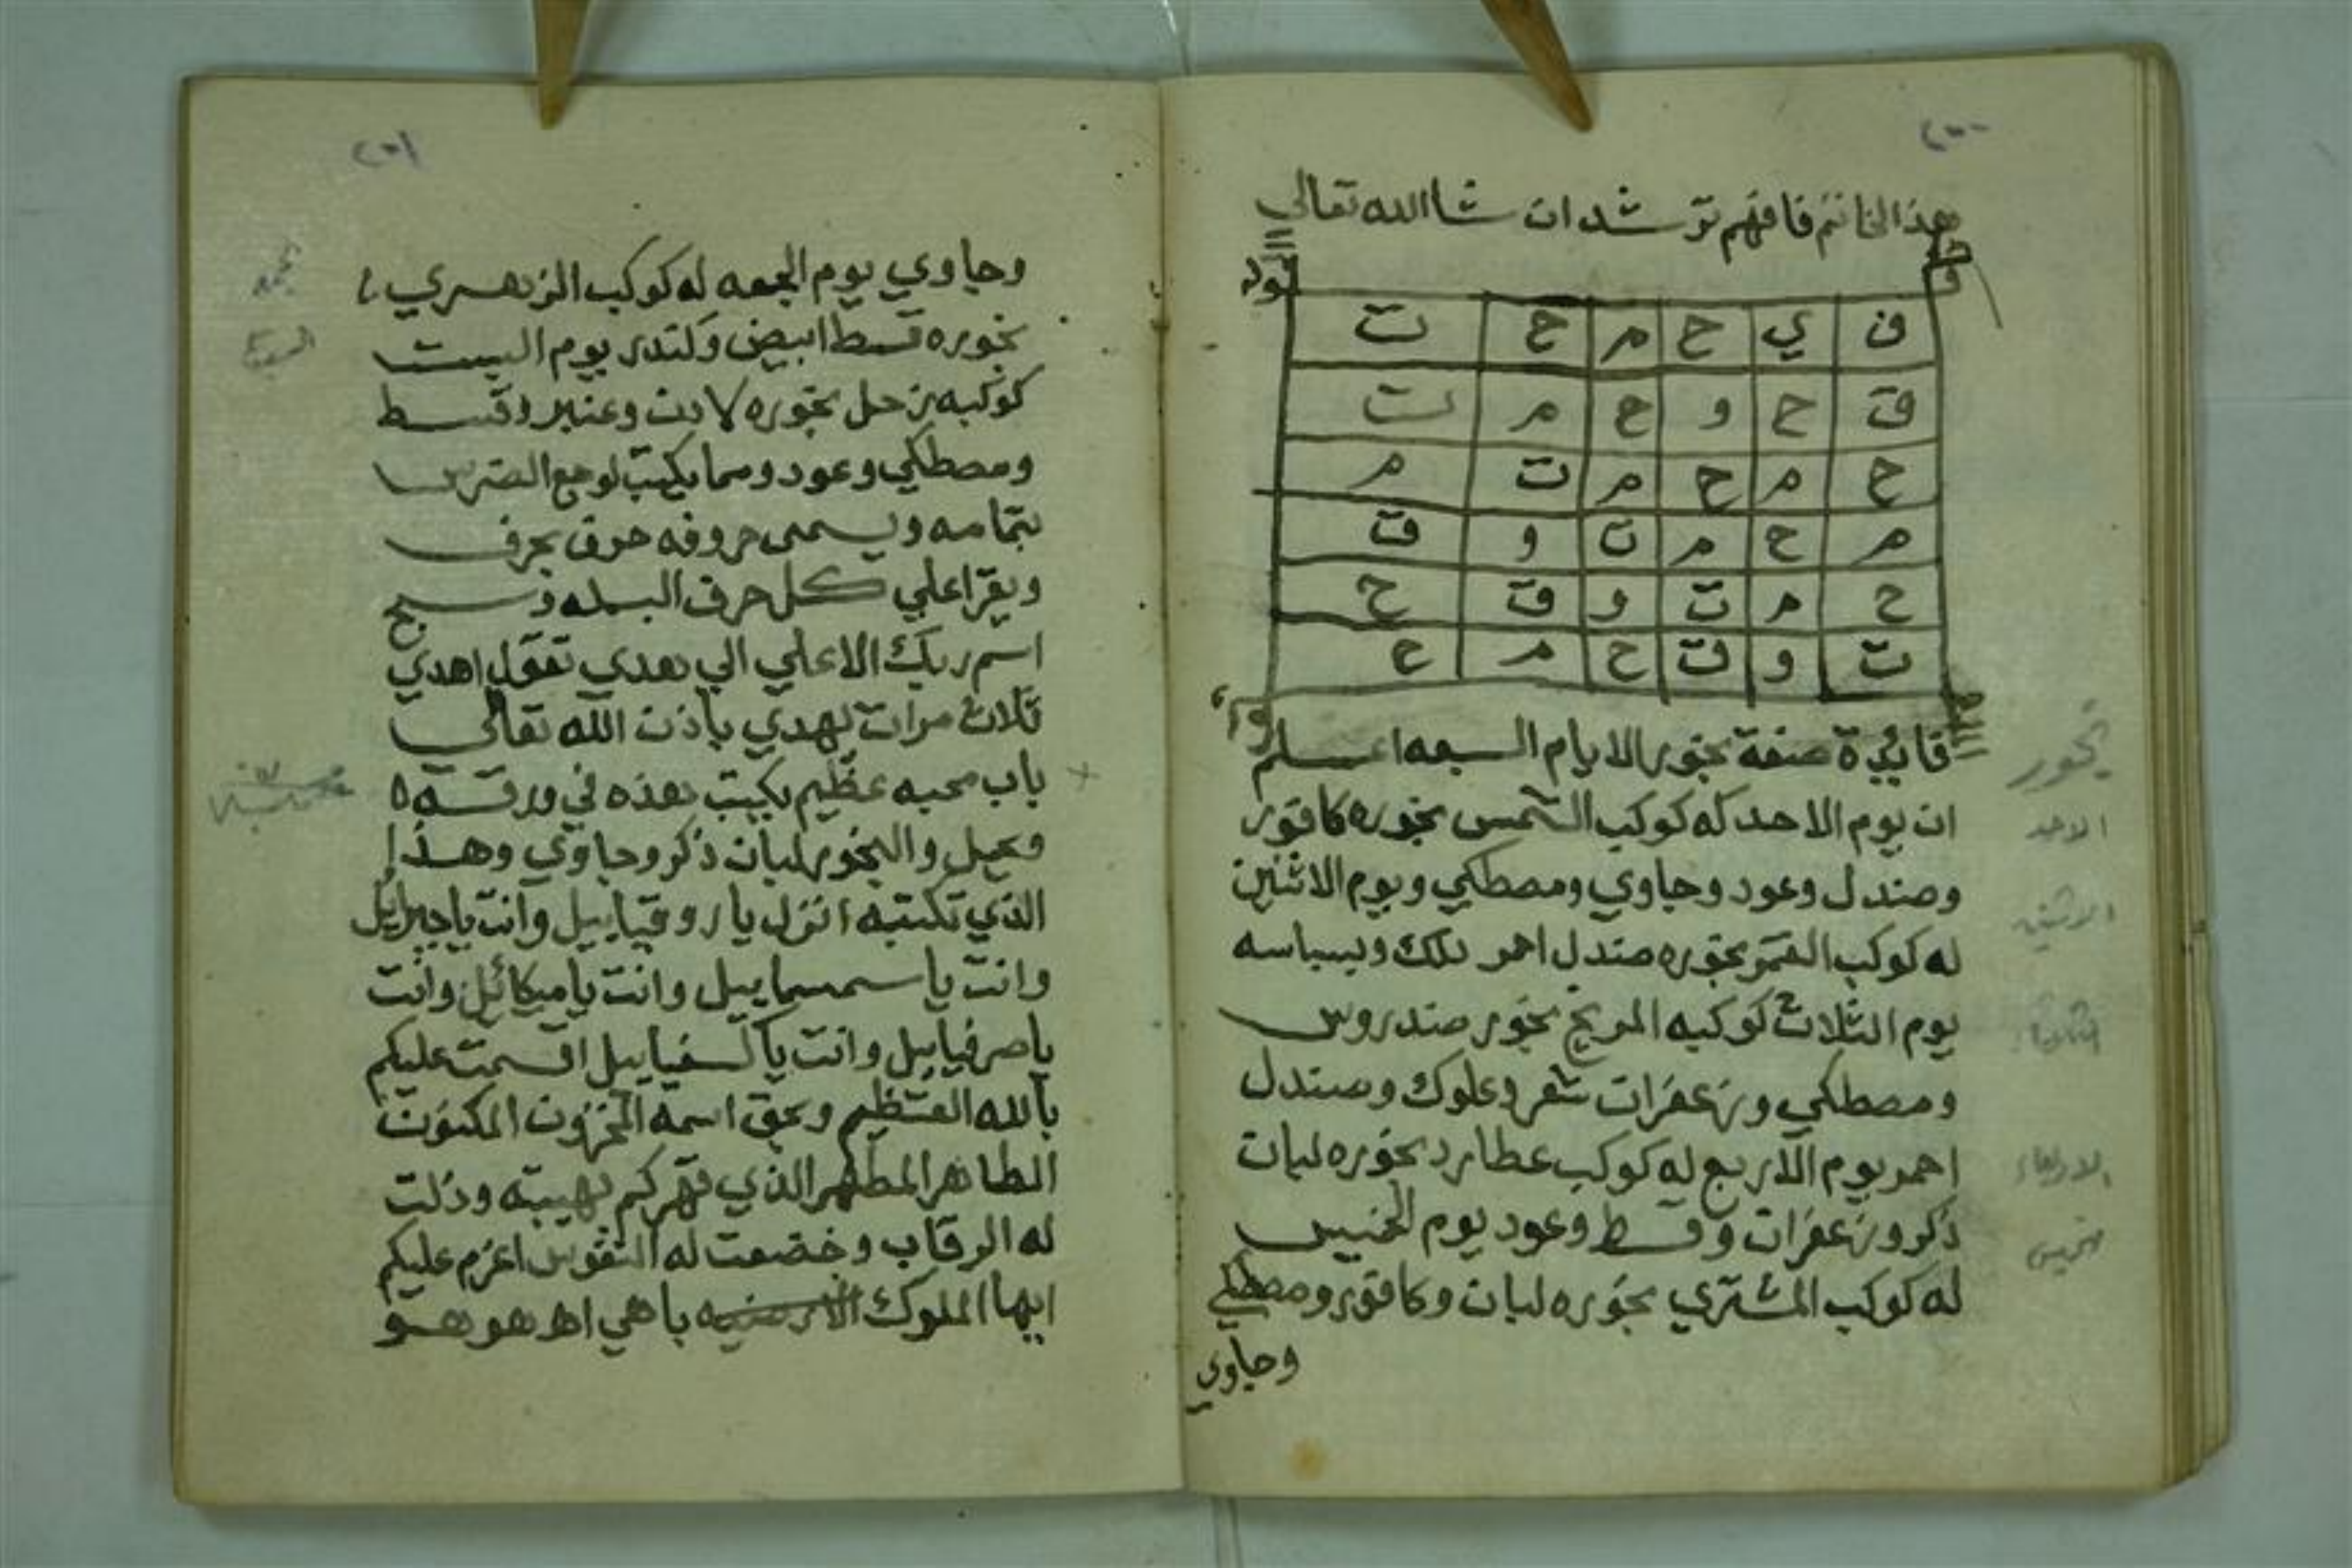 ٢٠٠
هذا الخاتم فافهم ترشد ان شاالله تعالي
ف ي ح م ح ت
ق ح و ح م ت
ح م ح م ت م
م ح م ت و ق
ح م ت و ق ح
ت و ق ح م ح
فايدة صفة بخور الايام السبعه اعلم
ان يوم الاحد له كوكب الشمس بخوره كافور
وصندل وعود وجاوي ومصطكي ويوم الاثنين
له كوكب القمر بخوره صندل احمر وبسباسه
يوم الثلاث كوكبه المريخ بخور صندروس
ومصطكي وزعفران شعر وعلوك وصندل
احمر يوم الاربع له كوكب عطارد بخوره لبان
ذكر وزعفران وقسط وعود يوم الخميس
له كوكب المشتري بخوره لبان وكافور ومصطكي
وجاوي
بخور
الاحد
الاثنين
الثلاثاء
الاربعاء
خميس
٢٠١
وجاوي يوم الجمعه له كوكب الزهري
بخوره قسط ابيض يوم السبت
كوكبه زحل بخوره لادن وعنبر وقسط
ومصطكي وعود ومما يكتب لوجع الضرس
بتمامه ويسمى حروفه حرف بحرف
ويقرا علي كل حرف البسمله وسبح
اسم ربك الاعلي الي هدي تقول اهدي
ثلاث مرات يهدي باذن الله تعالي
باب محبه عظيم يكتب هذه في ورقه
ويحمل والبخور لبان ذكر وجاوي وهذا
الذي تكتبه انزل يا روقياييل وانت يا جبرايل
وانت يا سمسماييل وانت يا ميكائل وانت
يا صرفياييل وانت يا كسفياييل اقسمت عليكم
بالله العظيم وبحق اسمه المخزون المكنون
الطاهر المطهر الذي قهركم بهيبته وذلت
له الرقاب وخضعت له النفوس اعزم عليكم
ايها الملوك الارضيه ياهي اهه هو هو
جمعه
السبت